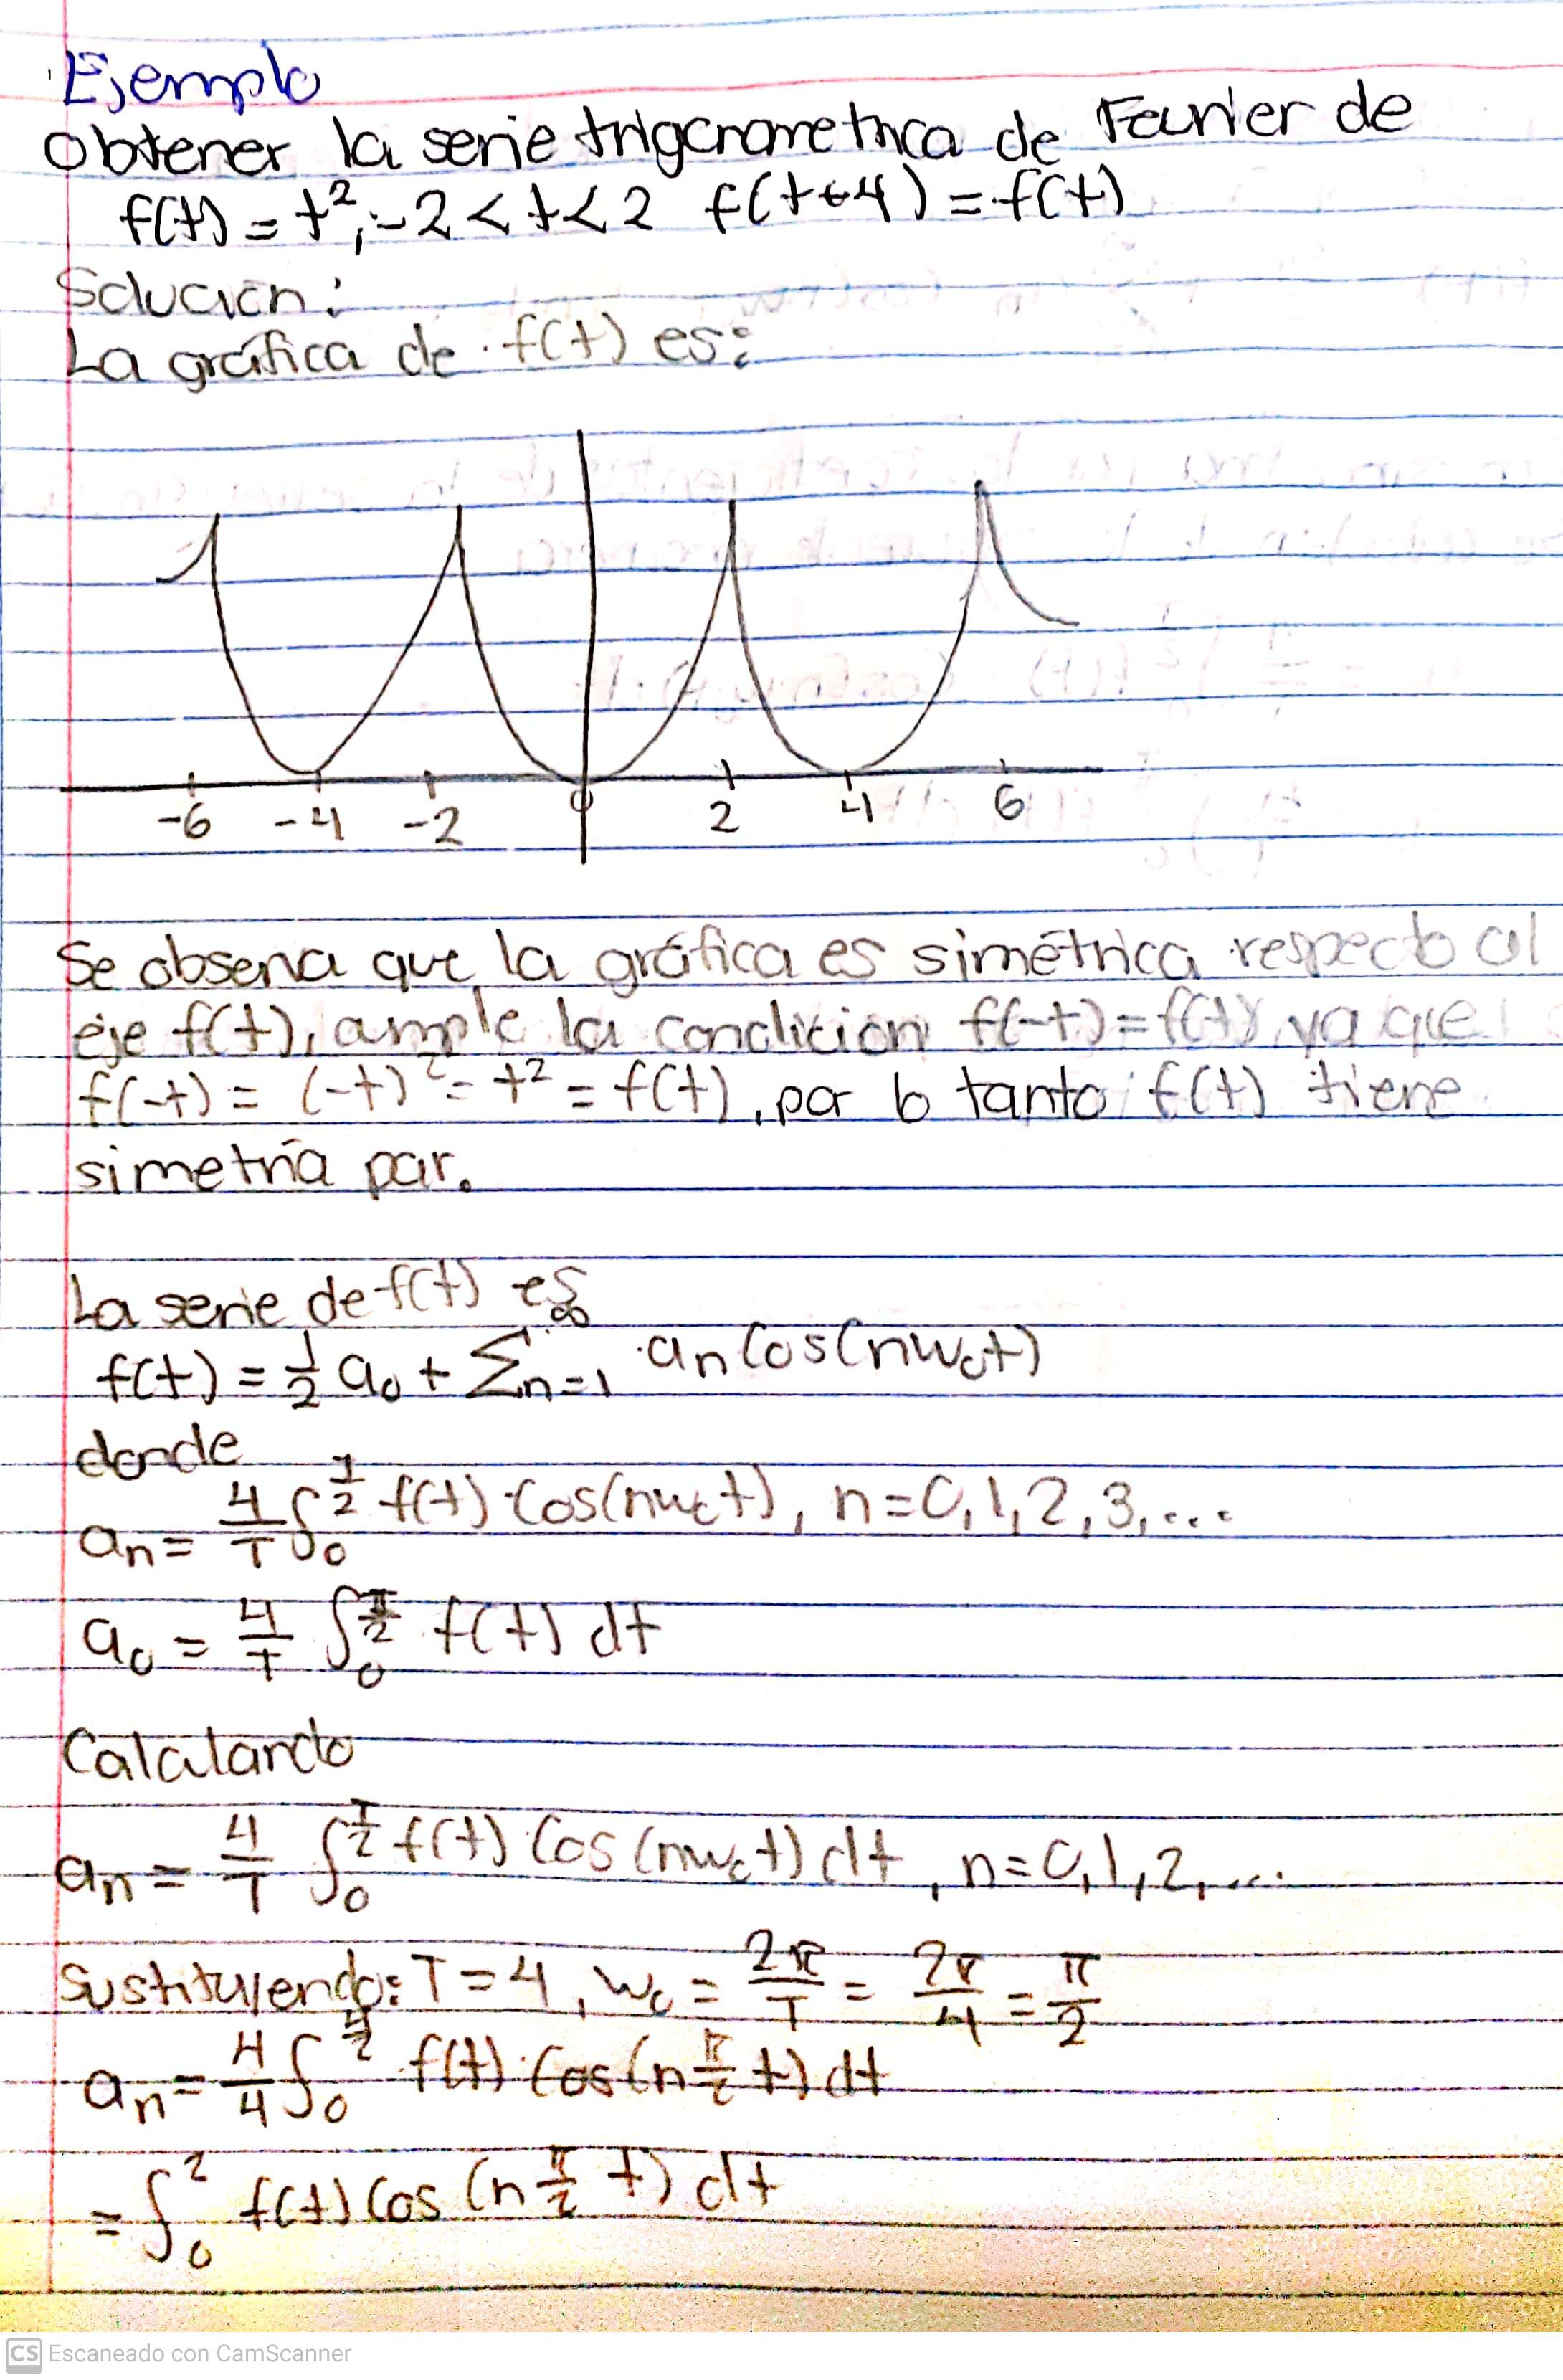 Ejemplo
Obtener la serie trigonometrica de Fourier de
f(t) = t², -2 < t < 2 f(t+4) = f(t)
Solución:
La gráfica de f(t) es:
-6 -4 -2 0 2 4 6
Se observa que la gráfica es simétrica respecto al
eje f(t), cumple la condición f(-t) = f(t) ya que
f(-t) = (-t)² = t² = f(t), por lo tanto f(t) tiene
simetría par.
La serie de f(t) es
f(t) = 1/2 a₀ + Σₙ₌₁^∞ aₙ Cos(nω₀t)
donde
aₙ = 4/T ∫₀^(T/2) f(t) · Cos(nω₀t), n = 0, 1, 2, 3, ...
a₀ = 4/T ∫₀^(T/2) f(t) dt
Calculando
aₙ = 4/T ∫₀^(T/2) f(t) · Cos(nω₀t) dt, n = 0, 1, 2, ...
Sustituyendo: T = 4, ω₀ = 2π/T = 2π/4 = π/2
aₙ = 4/4 ∫₀^(4/2) f(t) · Cos(n π/2 t) dt
= ∫₀² f(t) Cos(n π/2 t) dt
CS Escaneado con CamScanner